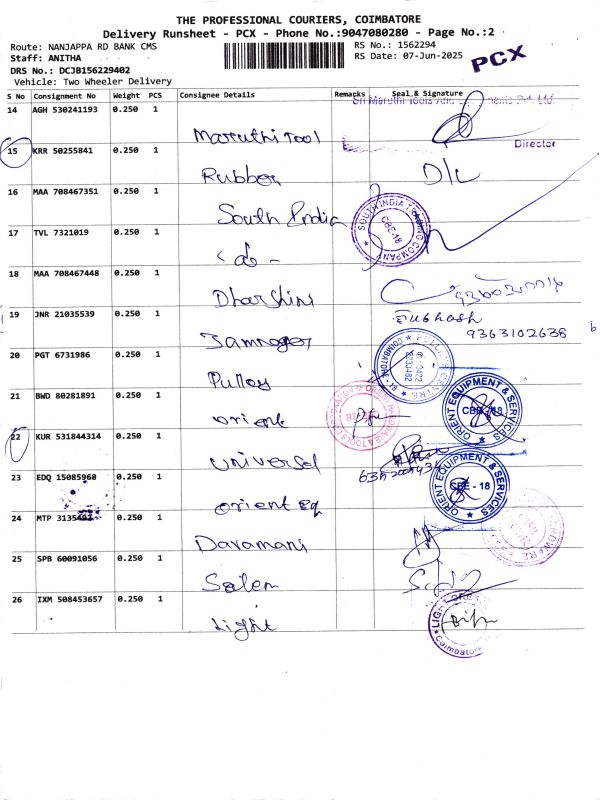 THE PROFESSIONAL COURIERS, COIMBATORE
Delivery Runsheet - PCX - Phone No.:9047080280 - Page No.:2
Route: NANJAPPA RD BANK CMS
RS No.: 1562294
Staff: ANITHA
RS Date: 07-Jun-2025
PCX
DRS No.: DCJB156229402
Vehicle: Two Wheeler Delivery
S No Consignment No Weight PCS Consignee Details Remarks Seal & Signature
14 AGH 530241193 0.250 1 Maruthi Tool
Sri Maruthi Tools Pvt. Ltd.
Director
15 KRR 50255841 0.250 1 Rubber D/L
16 MAA 708467351 0.250 1 South India
SOUTH INDIA TRADING COMPANY CBE-18
17 TVL 7321019 0.250 1
18 MAA 708467448 0.250 1 Dharshini
19 JNR 21035539 0.250 1 Jamnager
9363102638
20 PGT 6731986 0.250 1 Pulley
21 BWD 80281891 0.250 1 orient
ORIENT EQUIPMENT & SERVICES CBE-18
22 KUR 531844314 0.250 1 universal
23 EDQ 15085968 0.250 1 orient Eq
ORIENT EQUIPMENT & SERVICES CBE - 18
24 MTP 0.250 1 Davamani
25 SPB 60091056 0.250 1 Salem
26 IXM 508453657 0.250 1 Light
LIGHT Coimbatore